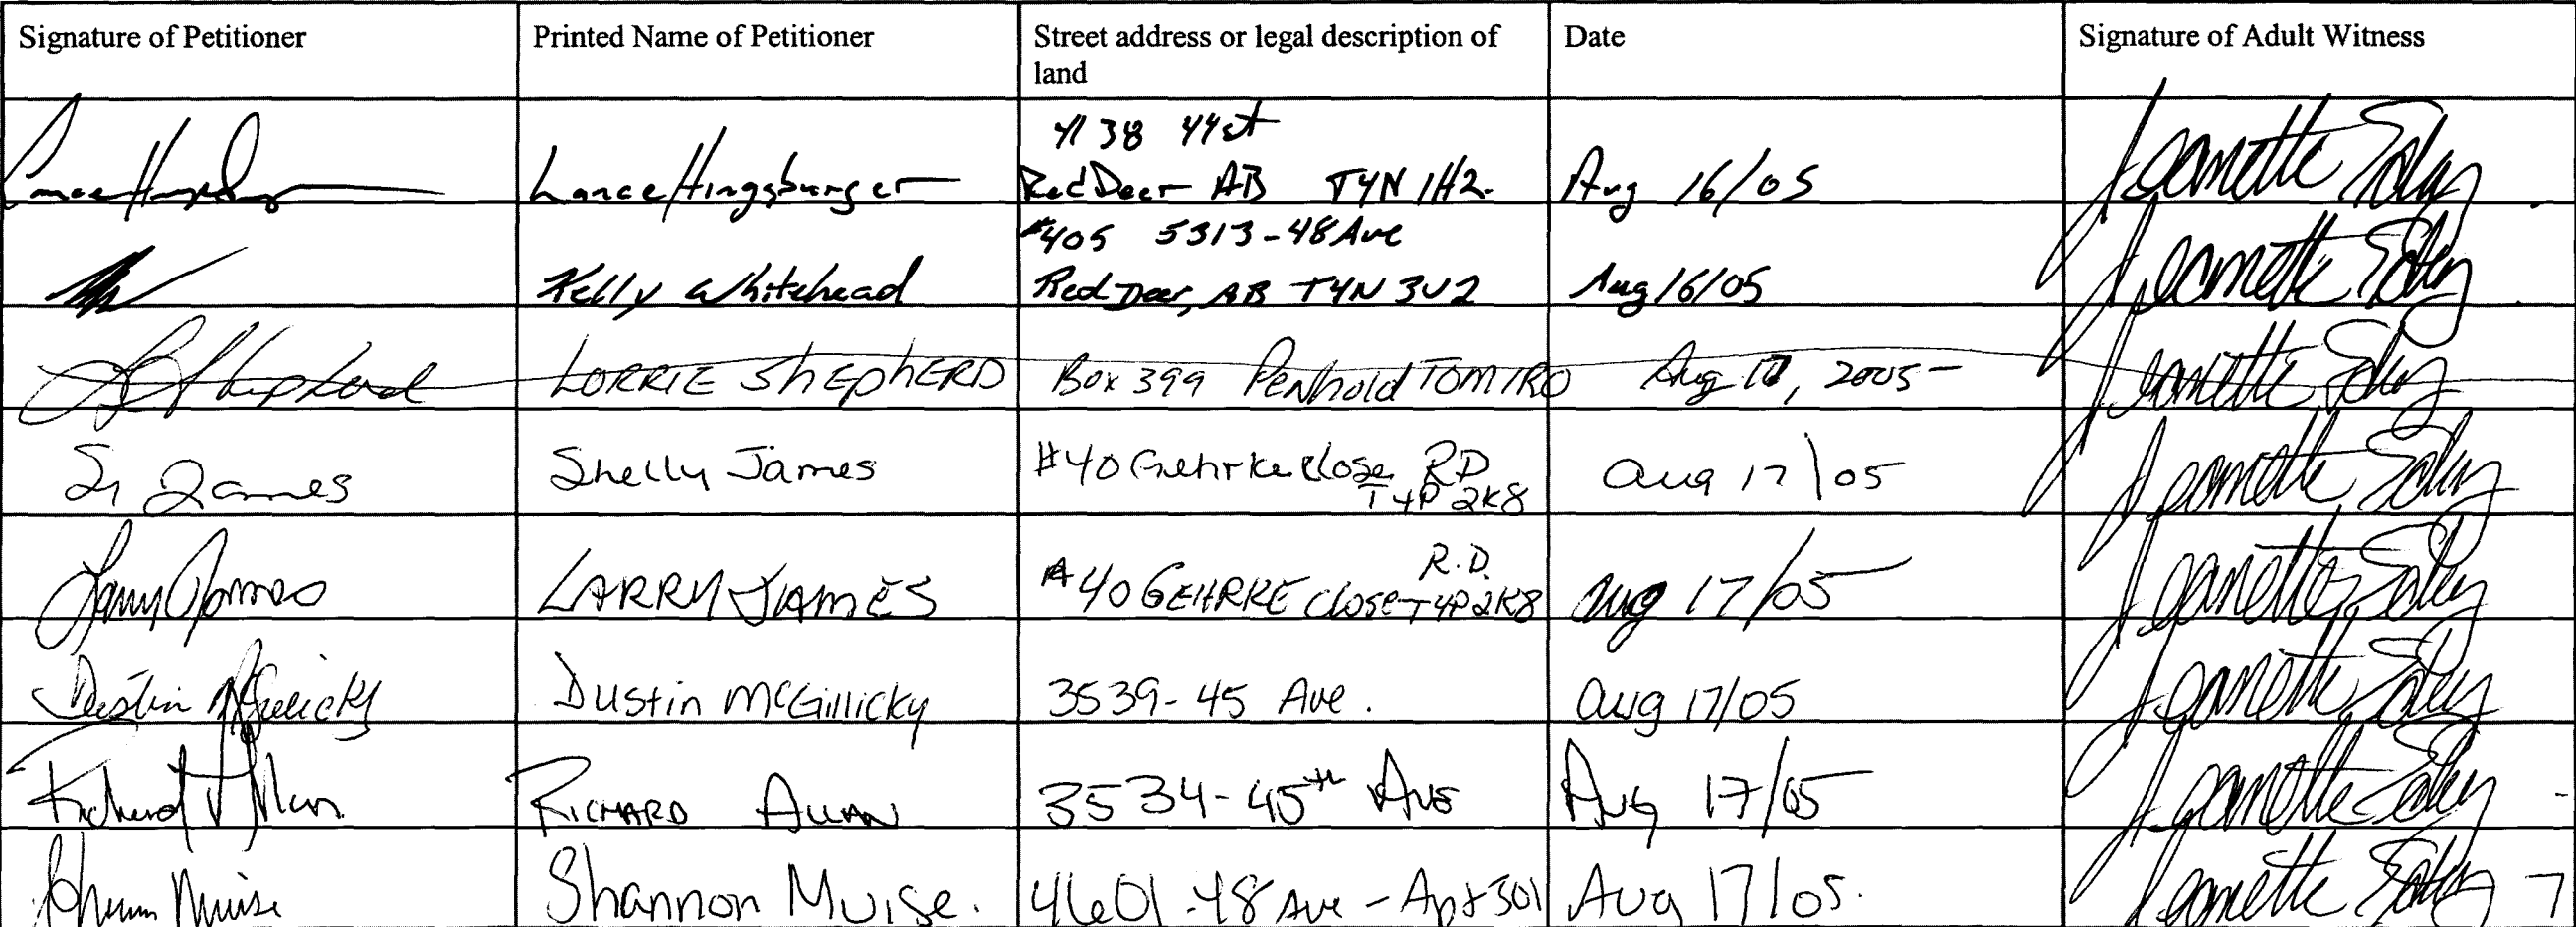 Signature of Petitioner
Printed Name of Petitioner
Street address or legal description of
land
Date
Signature of Adult Witness
Lance Hingsburger
4138 44st
Red Deer AB T4N 1H2.
Aug 16/05
Jeanette
Kelly Whitehead
#405 5313-48 Ave
Red Deer, AB T4N 3V2
Aug 16/05
Jeanette
L Shepherd
LORRIE ShEphERD
Box 399 Penhold T0M1R0
Aug 17, 2005
Jeanette
S. James
Shelly James
#40 Gehrke Close RD
T4P 2K8
Aug 17/05
Jeanette
Larry James
LARRY JAMES
R.D.
#40 GEHRKE Close T4P2K8
Aug 17/05
Jeanette
Dustin McGillicky
Dustin McGillicky
3539-45 Ave.
Aug 17/05
Jeanette
Richard Allan
RICHARD ALLAN
3534-45th AVE
Aug 17/05
Jeanette
Shannon Muise
Shannon Muise.
4601-48 Ave - Apt 301
Aug 17/05.
Jeanette
7